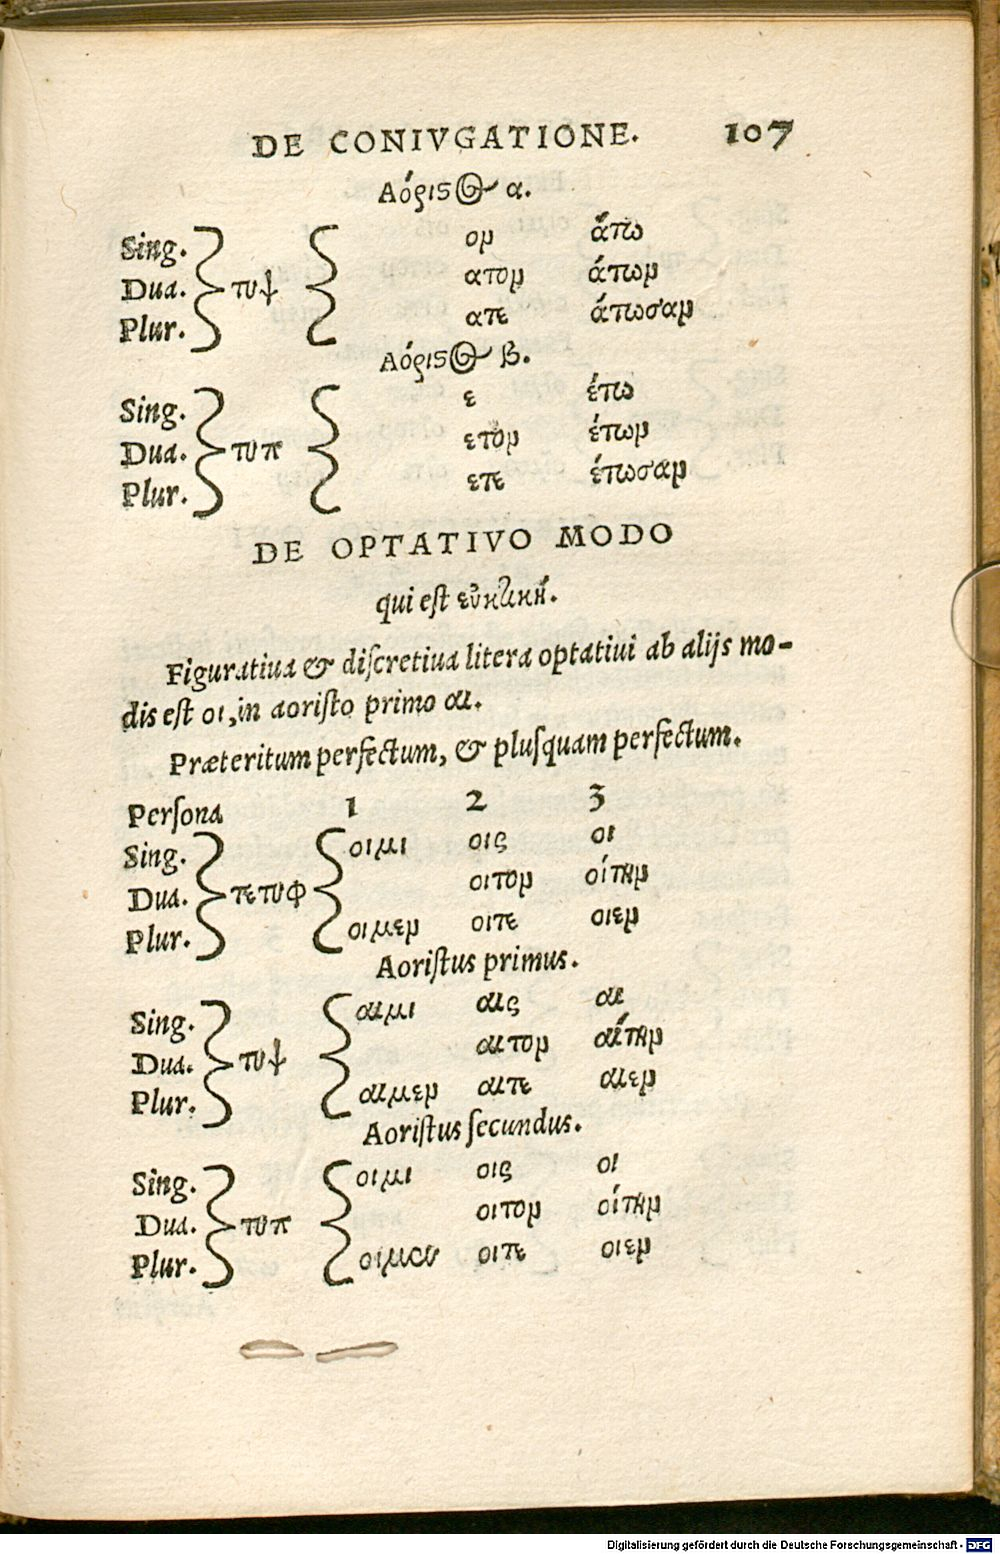 DE CONIVGATIONE. 107
Αόριστος α.
Sing. ον άτω
Dua. τυψ ατον άτων
Plur. ατε άτωσαν
Αόριστος β.
Sing. ε έτω
Dua. τυπ ετον έτων
Plur. ετε έτωσαν
DE OPTATIVO MODO
qui est εὐκτική.
Figuratiua & discretiua litera optatiui ab alijs mo-
dis est οι, in aoristo primo αι.
Præteritum perfectum, & plusquam perfectum.
Persona 1 2 3
Sing. οιμι οις οι
Dua. τετυφ οιτον οίτην
Plur. οιμεν οιτε οιεν
Aoristus primus.
Sing. αιμι αις αι
Dua. τυψ αιτον αίτην
Plur. αιμεν αιτε αιεν
Aoristus secundus.
Sing. οιμι οις οι
Dua. τυπ οιτον οίτην
Plur. οιμεν οιτε οιεν
Digitalisierung gefördert durch die Deutsche Forschungsgemeinschaft - DFG